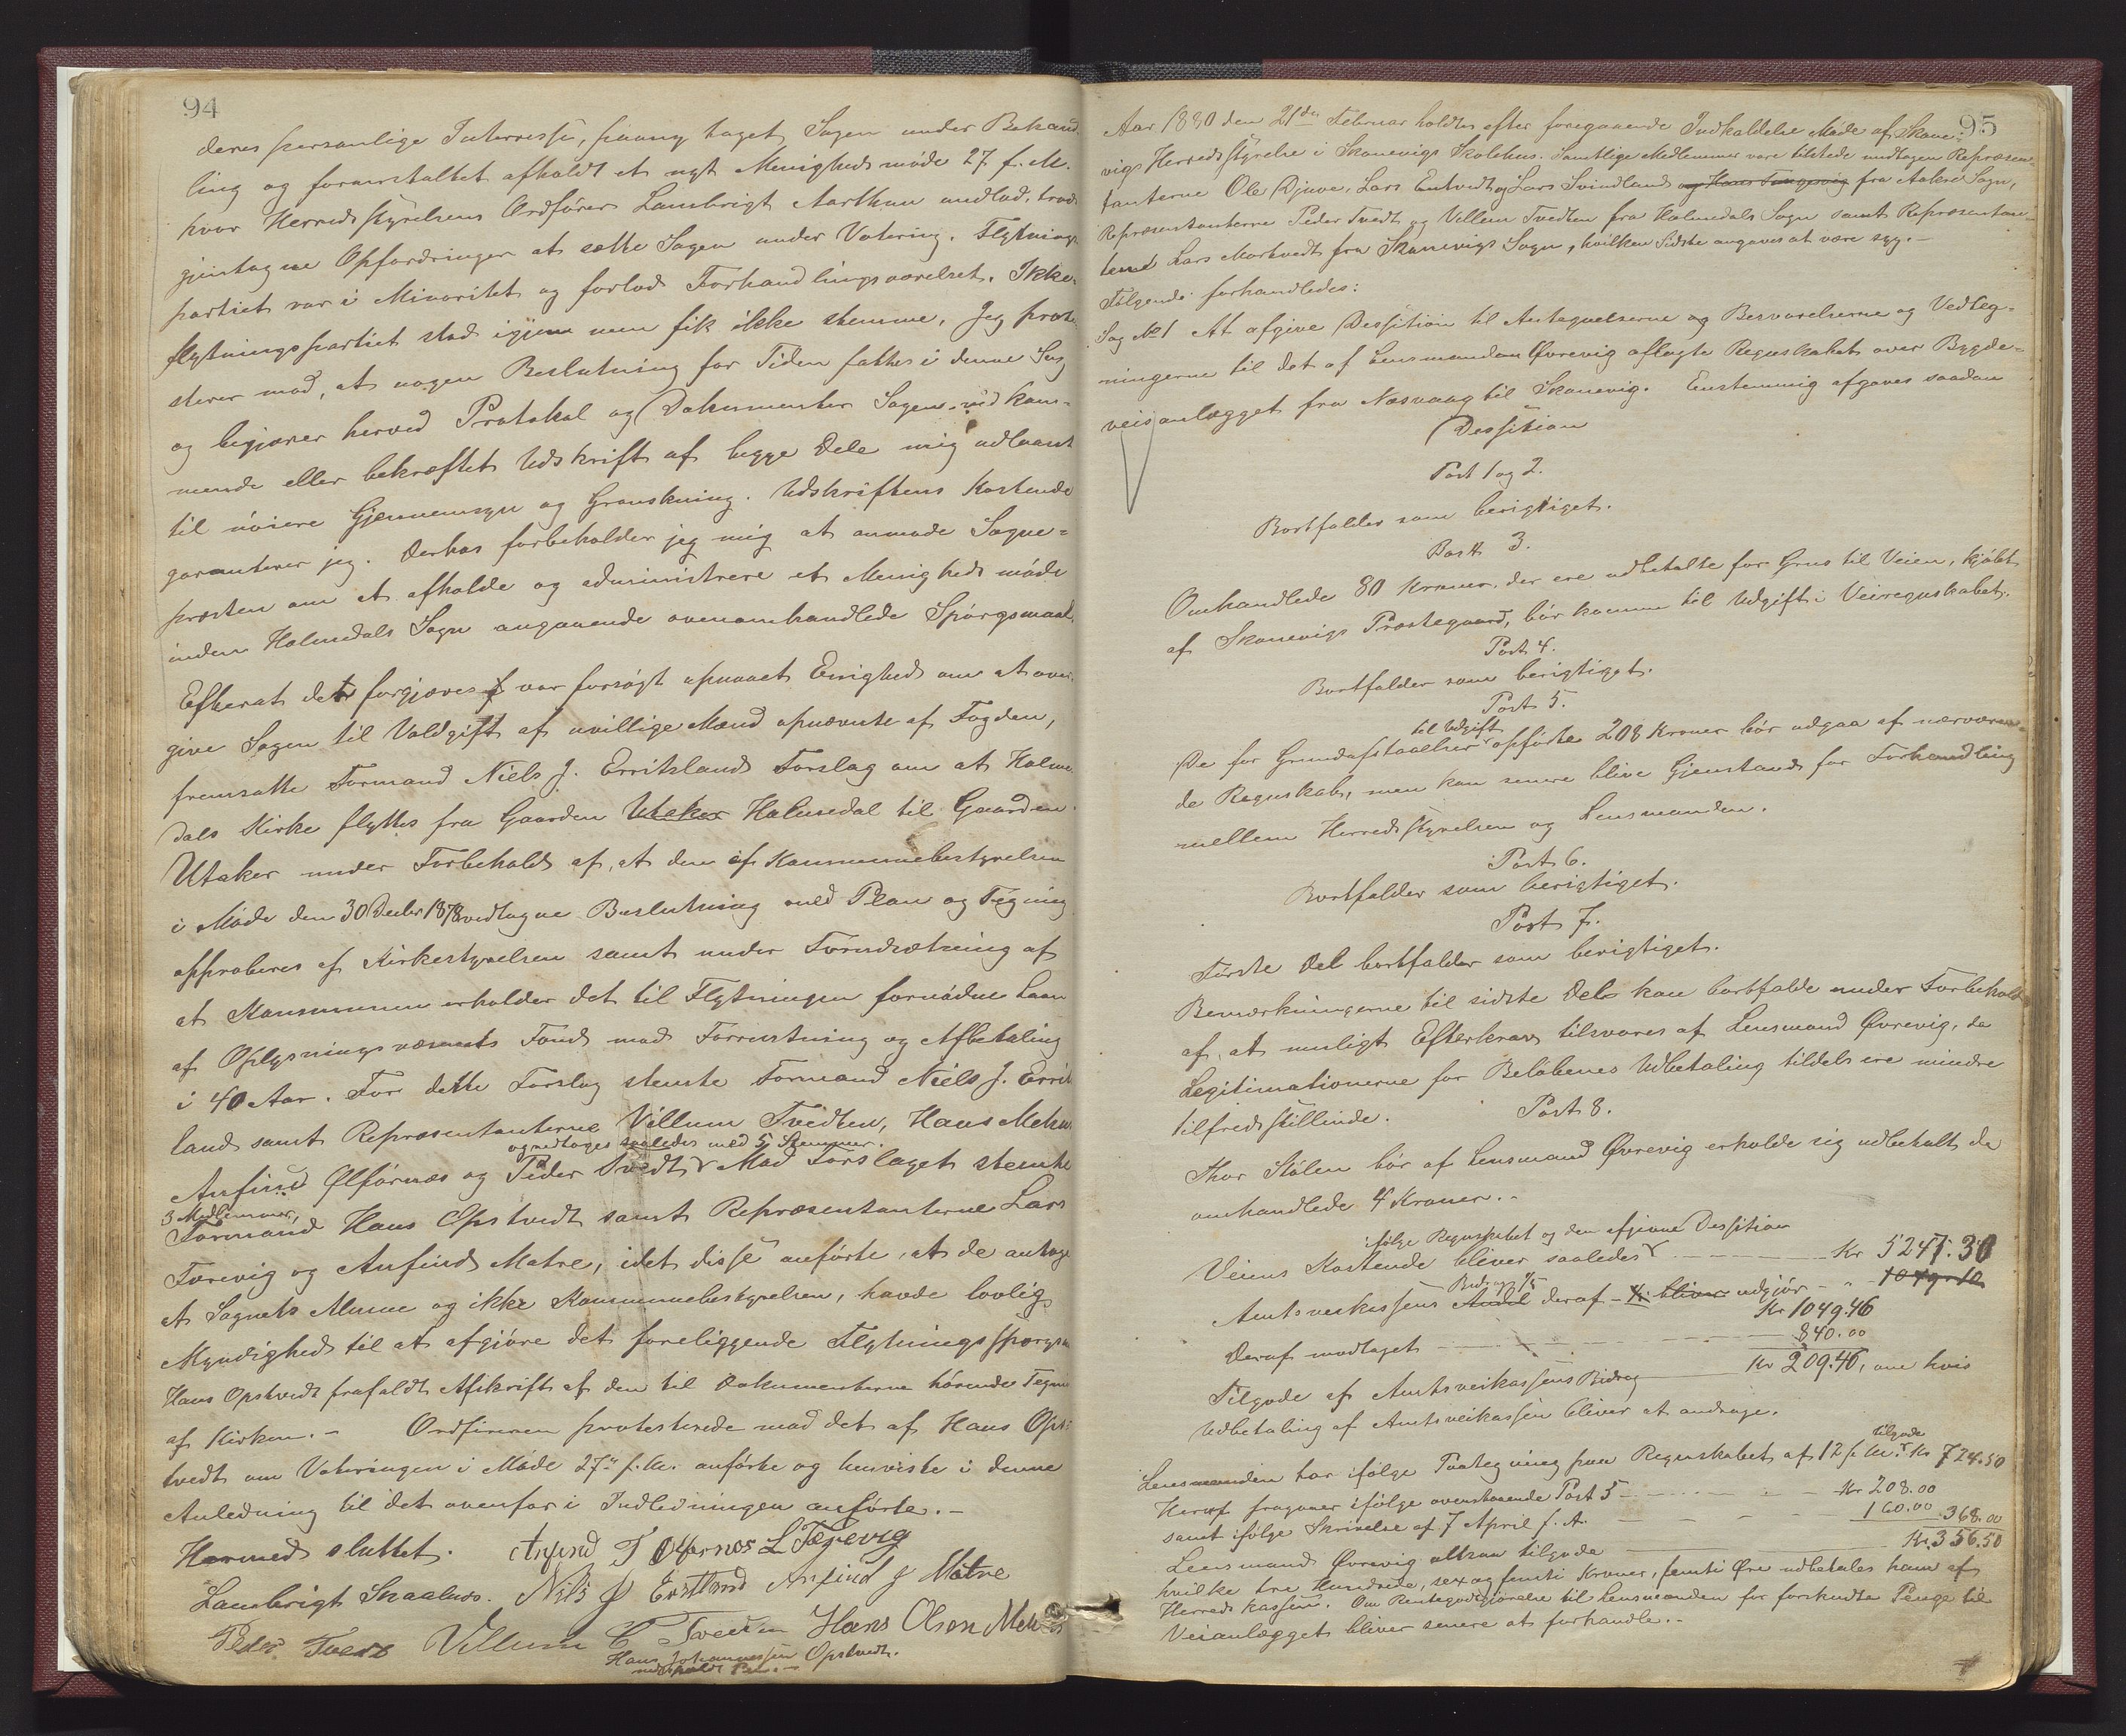 94
deres personlige Interesse, paany taget Sagen under Behand-
ling og foranstaltet afholdt et nyt Menighedsmøde 27. f. M.
hvor Herredsstyrelsens Ordfører Lambrigt undlod, trods
gjentagne Opfordringer at sætte Sagen under Votering. Flytnings
partiet var i Minoritet og forlod Forhandlingsværelset. Ikke-
flytningspartiet stod igjen men fik ikke stemme. Jeg prote-
sterer mod, at nogen Beslutning for Tiden fattes i denne Sag
og begjærer herved Protokol og Dokumenter Sagen vedkom-
mende eller bekræftet Udskrift af begge Dele mig udlaant
til nøiere Gjennemsyn og Granskning. Udskriftens Kostende
garanterer jeg. Derhos forbeholder jeg mig at anmode Sogne-
præsten om at afholde og administrere et Menighedsmøde
inden Holmedals Sogn angaaende ovenomhandlede Spørgsmaal.
Efterat det forgjæves var forsøgt opnaaet Enighed om at over-
give Sagen til Voldgift af uvillige Mænd opnævnte af Fogden,
fremsatte Formand Niels J. Erritslands Forslag om at Holme-
dals Kirke flyttes fra Gaarden Utaker Holmedal til Gaarden
Utaker under Forbehold af, at den af Kommunebestyrelsen
i Møde den 30 Decbr 1878 vedtagne Beslutning med Plan og Tegning
approberes af Kirkestyrelsen samt under Forudsætning af
at Kommunen erholder det til Flytningen fornødne Laan
af Oplysningsvæsenets Fond mod Forrentning og Afbetaling
i 40 Aar. For dette Forslag stemte Formand Niels J. Errits
land samt Repræsentanterne Villum Tvedten, Hans Mehus
og vedtoges saaledes med 5 Stemmer.
Anfind Ølførnæs og Peder Tvedt Mod Forslaget stemte
3 Medlemmer,
Formand Hans Opstvedt samt Repræsentanterne Lars
Tørevig og Anfind Matre, idet disse anførte, at de antage
at Sognets Almue og ikke Kommunebestyrelsen, havde lovlig
Myndighed til at afgjøre det foreliggende Flytningsspørgsm
Hans Opstvedt frafaldt Afskrift af den til Dokumenterne hørende Tegnin
af Kirken.- Ordføreren protesterede mod det af Hans Opst
tvedt om Voteringen i Møde 27de f.M. anførte og henviste i denne
Anledning til det ovenfor i Indledningen anførte.-
Hermed sluttet. Anfind T Ølfernes L Tørevig
Lambrigt Nils J Eritsland Anfind J Matre
Peder Tvedt Villum C Tvedten Hans Olsen Mehus
Hans Johannessen Opstvedt.
95
Aar 1880 den 21de Februar holdtes efter foregaaende Indkaldelse Møde af Skaane-
vigs Herredsstyrelse i Skonevigs Skolehus. Samtlige Medlemmer vare tilstede undtagen Repræsen-
tanterne Ole Djuve, Lars Entvedt og Lars Svindland og Hans Tungesvig fra Aakre Sogn,
Repræsentanterne Peder Tvedt og Villum Tvedten fra Holmedals Sogn samt Repræsentan-
terne Lars Markvedt fra Skonevigs Sogn, hvilken Sidste angaves at være syg.-
Følgende forhandledes:
Sag No 1 At afgive Desisition til Antegnelserne og Besvarelserne og Vedteg-
ningerne til det af Lensmanden Øvrevig aflagte Regnskabet over Bygde-
veisanlægget fra Næsvaag til Skonevig. Enstemmig afgaves saadan
Desisition
Post 1 og 2.
Bortfalder som berigtiget.
Post 3.
Omhandlede 80 Kroner, der ere udbetalte for Grus til Veien, kjøbt
af Skonevigs Præstegaard, bør komme til Udgift i Veiregnskabet.
Post 4.
Bortfalder som berigtiget.
Post 5.
til Udgift
De for Grundafstaaelser opførte 208 Kroner bør udgaa af nærværen-
de Regnskab, men kan senere blive Gjenstand for Forhandling
mellem Herredsstyrelsen og Lensmanden.
Post 6.
Bortfalder som berigtiget.
Post 7.
Første Del bortfalder som berigtiget.
Bemærkningerne til sidste Del kan bortfalde under Forbehold
af, at muligt Efterkrav tilsvares af Lensmand Øvrevig, da
Legitimationerne for Beløbenes Udbetaling tildels ere mindre
tilfredsstillende.
Post 8.
Thor Stølen bør af Lensmand Øvrevig erholde sig udbetalt de
omhandlede 4 Kroner.-
ifølge Regnskabet og den afgivne Desisition
Veiens Kostende bliver saaledes Kr 5247.30
Bidrag 1/5
Amtsveikassens Andel deraf bliver udgjør
Kr 1049.46
Deraf modtaget 840.00
Tilgode af Amtsveikassens Bidrag Kr 209.46, om hvis
Udbetaling af Amtsveikassen bliver at andrage.
tilgode
Lensmanden har ifølge Paategning paa Regnskabet af 12 f. M. Kr 724.50
Heraf fragaaer ifølge ovenstaaende Post 5 Kr 208.00
samt ifølge Skrivelse af 7 April f. A. 160.00 368.00
Lensmand Øvrevig altsaa tilgode Kr. 356.50
hvilke tre Hundrede, sex og femti Kroner, femti Øre udbetales ham af
Herredskassen. Om Rentegodtgjørelse til Lensmanden for forskudte Penge til
Veianlægget bliver senere at forhandle.-